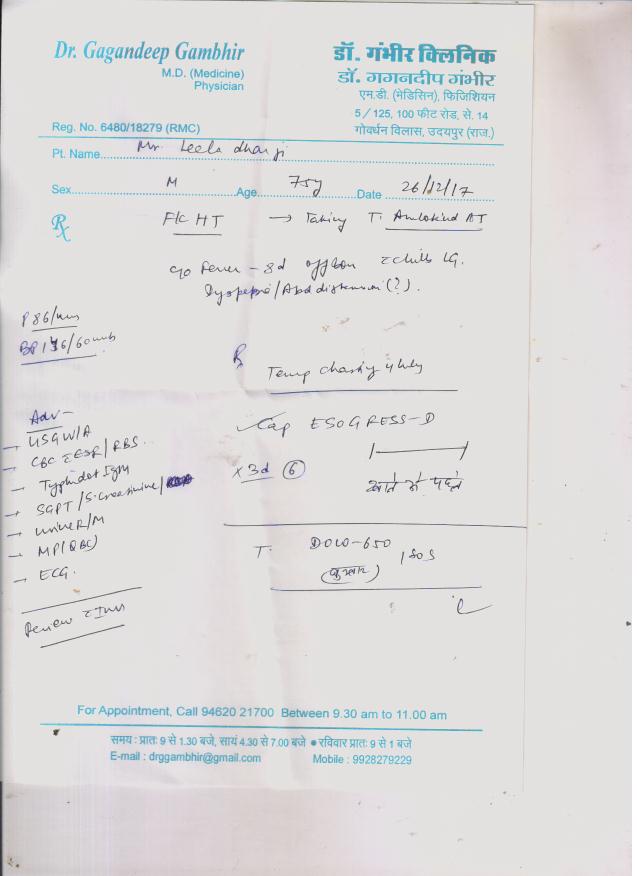 Dr. Gagandeep Gambhir
M.D. (Medicine)
Physician
Reg. No. 6480/18279 (RMC)
डॉ. गंभीर क्लिनिक
डॉ. गगनदीप गंभीर
एम.डी. (मेडिसिन), फिजिशियन
5/125, 100 फीट रोड, से. 14
गोवर्धन विलास, उदयपुर (राज.)
Pt. Name Mr Leela dhar ji
Sex M Age 75y Date 26/12/17
Rx F/C HT → Taking T. Amlokind AT
c/o Fever - 8d off/on c chills
Dyspepsia/Abd distension (?).
P 86/min
BP 136/60
R
Temp charting 4 hrly
Adv -
→ USG W/A
→ CBC c ESR/RBS
→ Typhidot IgM
→ SGPT/S. Creatinine/
→ Urine R/M
→ MP(QBC)
→ ECG.
Review c
Cap ESOGRESS-D
1 ——— 1
x 3d (6) खाने से पहले
T. DOLO-650
(बुखार) 1 SOS
For Appointment, Call 94620 21700 Between 9.30 am to 11.00 am
समय : प्रातः 9 से 1.30 बजे, सायं 4.30 से 7.00 बजे ● रविवार प्रातः 9 से 1 बजे
E-mail : drggambhir@gmail.com Mobile : 9928279229